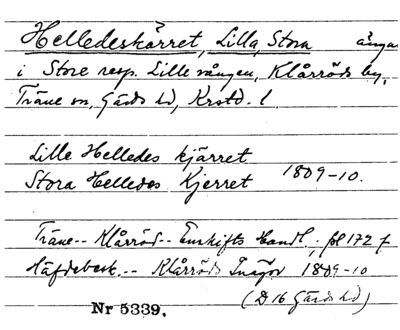 Helledeskärret, Lilla, Stora ängar
i Store resp. Lille vången, Klårröds by,
Träne sn, Gärds hd, Krstd. l.
Lille Helledes kjärret
Stora Helledes Kjerret 1809-10.
Träne-- Klårröd-- Enskifts Handl., fol 172 f
Häfdebesk.-- Klårröds Inägor 1809-10
(D 16 Gärds hd)
Nr 5339.